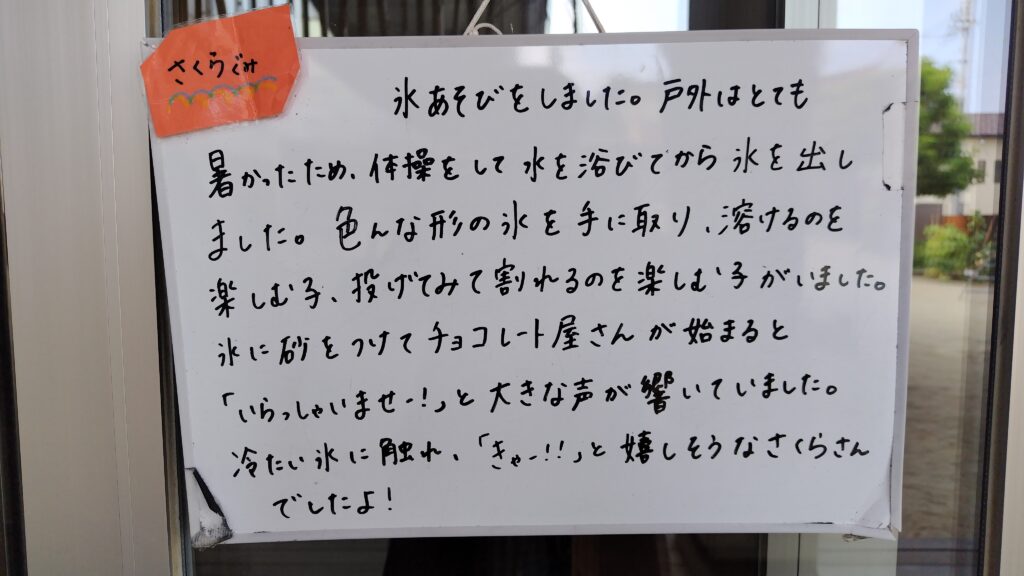 さくらぐみ
氷あそびをしました。戸外はとても
暑かったため、体操をして水を浴びてから氷を出し
ました。色んな形の氷を手に取り、溶けるのを
楽しむ子、投げてみて割れるのを楽しむ子がいました。
氷に砂をつけてチョコレート屋さんが始まると
「いらっしゃいませー!」と大きな声が響いていました。
冷たい氷に触れ、「きゃー!!」と嬉しそうなさくらさん
でしたよ!